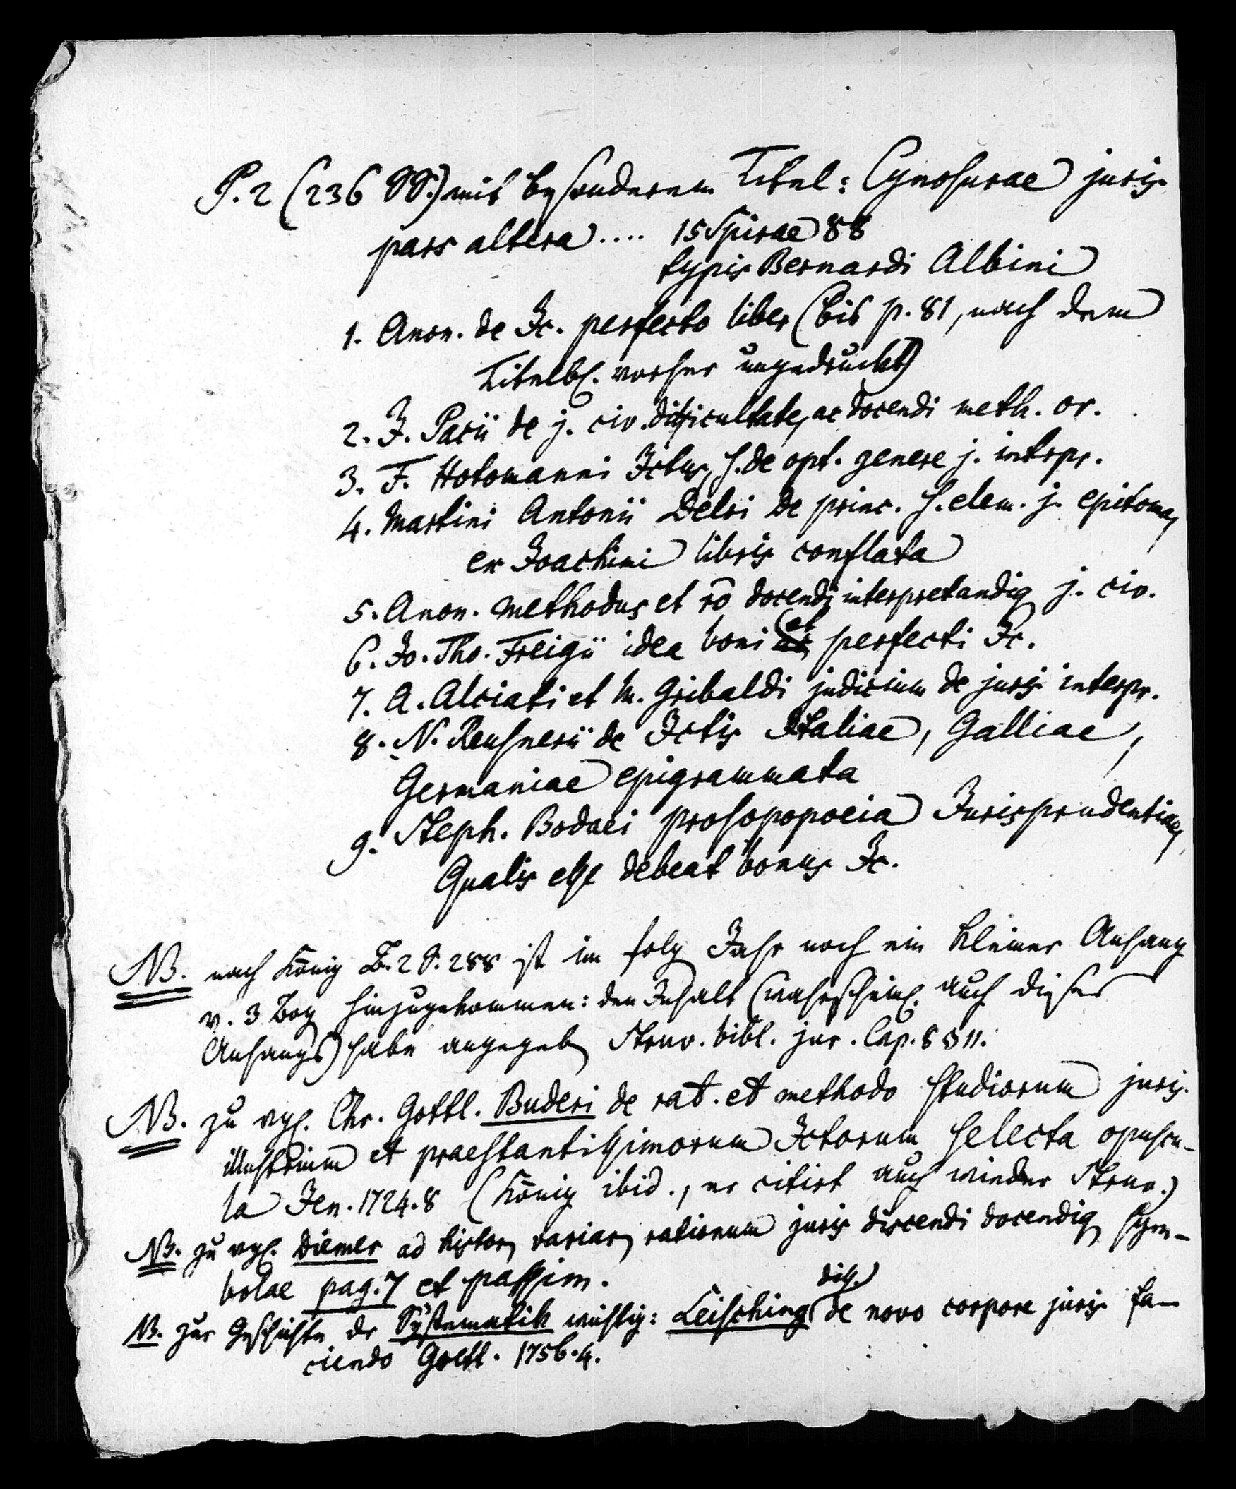 P. 2 (236 SS.) mit besonderem Titel: Cynosurae juris
pars altera.... 15 Spirae 88
typis Bernardi Albini
1. Anon. de Jc. perfecto liber (bis p. 81, nach dem
Titelbl. vorher ungedruckt)
2. J. Pacii de j. civ. difficultate, ac docendi meth. or.
3. F. Hotomanni Jctus, s. de opt. genere j. intrpr.
4. Martini Antonii Delri de princ. s. elem. j. epitoma,
ex Joachimi libris conflata
5. Anon. methodus et rō docendi interpretandiq j. civ.
6. Jo. Tho. Freigii idea boni et perfecti Jc.
7. A. Alciati et M. Gribaldi judicium de juris interpr.
8. N. Reusneri de Jctis Italiae, Galliae,
Germaniae epigrammata
9. Steph. Bodaei prosopopoeia Jurisprudentiae,
Qualis esse debeat bonus Jc.
NB. nach König B. 2 S. 288 ist im folg Jahr noch ein kleiner Anhang
v. 3 Bog hinzugekommen: den Inhalt (wahrscheinl. auch dieses
Anhangs) habe angegeb Struv. bibl. jur. Cap. 8 § 11.
NB. zu vgl. Chr. Gottl. Buderi de rat. et methodo studiorum juris.
illustrium et praestantissimorum Jctorum selecta opuscu-
la Jen. 1724. 8 (König ibid., er citirt auch wieder Struv.)
NB. zu vgl. Diemer ad histor variar rationum juris discendi docendiq sym-
bolae pag. 7 et passim.
NB. zur Geschichte der Systematik wichtig: Leisching diss. de novo corpore juris fa-
ciendo Goett. 1756. 4.